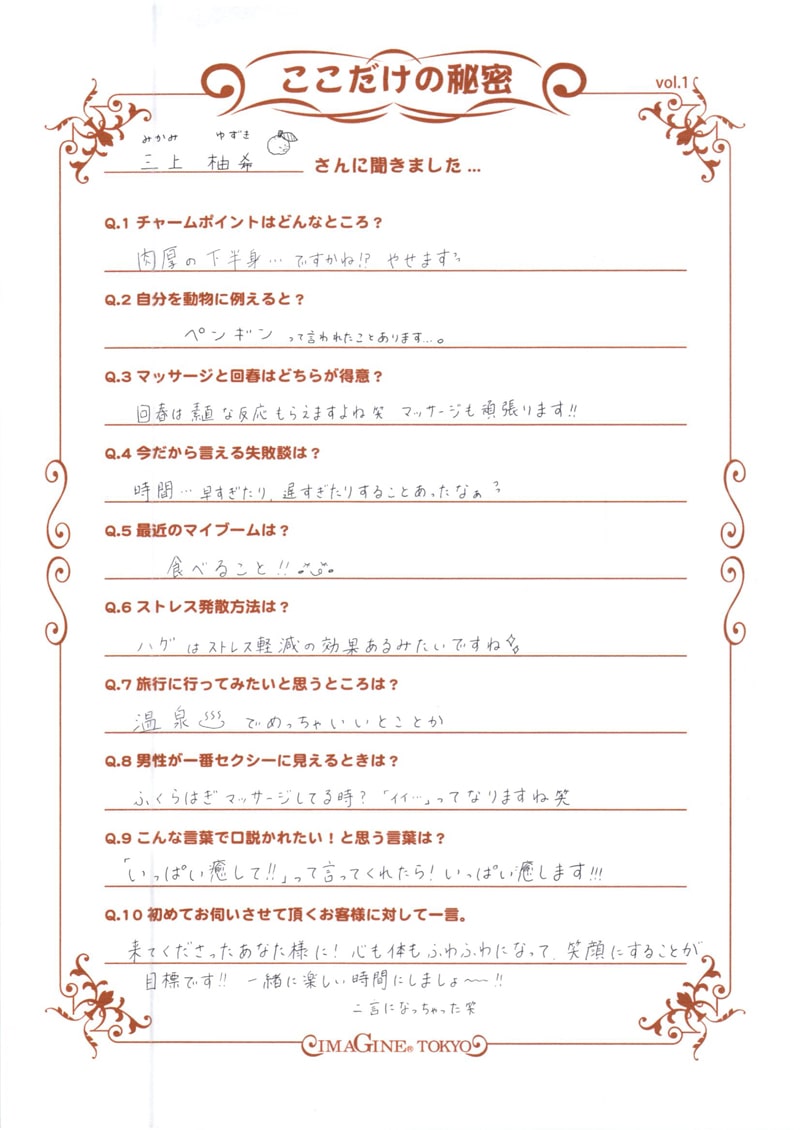 ここだけの秘密
vol.1
みかみ ゆずき
三上 柚希 さんに聞きました...
Q.1 チャームポイントはどんなところ？
肉厚の下半身… ですかね!? やせますっ
Q.2 自分を動物に例えると？
ペンギン って言われたことあります…。
Q.3 マッサージと回春はどちらが得意？
回春は素直な反応もらえますよね笑 マッサージも頑張ります!!
Q.4 今だから言える失敗談は？
時間… 早すぎたり、遅すぎたりすることあったなぁっ
Q.5 最近のマイブームは？
食べること!!
Q.6 ストレス発散方法は？
ハグはストレス軽減の効果あるみたいですね
Q.7 旅行に行ってみたいと思うところは？
温泉 でめっちゃいいとことか
Q.8 男性が一番セクシーに見えるときは？
ふくらはぎマッサージしてる時？「イイ…」ってなりますね笑
Q.9 こんな言葉で口説かれたい！と思う言葉は？
「いっぱい癒して!!」って言ってくれたら！いっぱい癒します!!!
Q.10 初めてお伺いさせて頂くお客様に対して一言。
来てくださったあなた様に！心も体もふわふわになって、笑顔にすることが
目標です!! 一緒に楽しい時間にしましょ〜〜!!
二言になっちゃった笑
IMAGINE® TOKYO